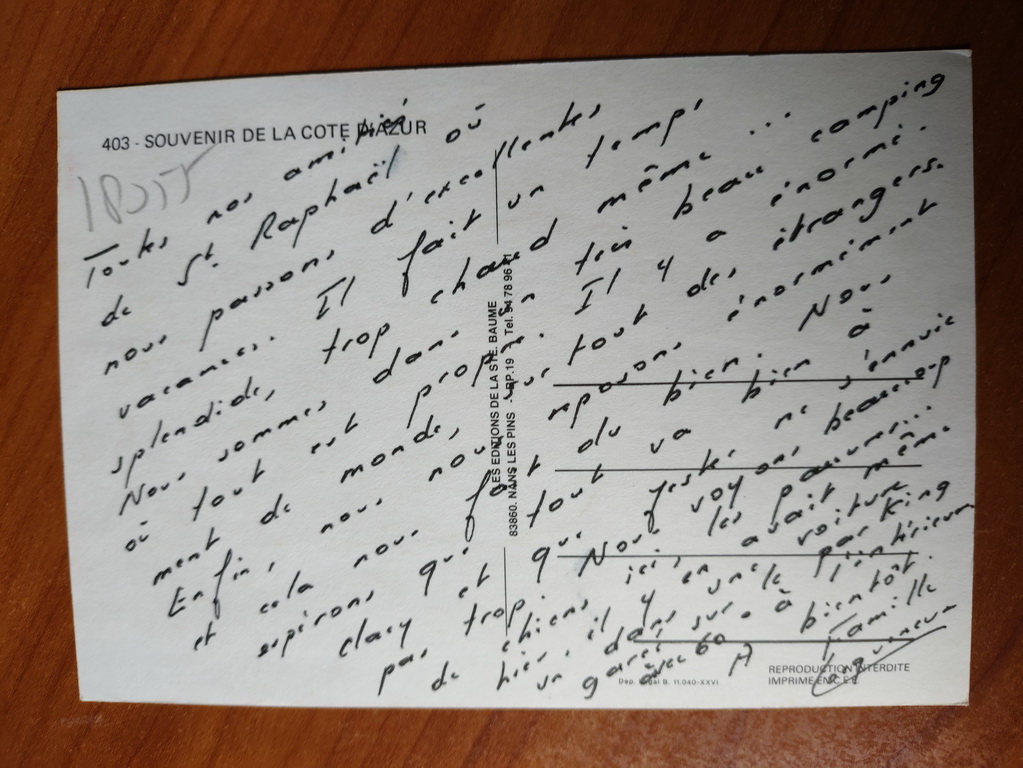 403 - SOUVENIR DE LA COTE D'AZUR
18055
Toutes nos amitiés
de St. Raphaël où
nous passons d'excellentes
vacances. Il fait un temps
splendide, trop chaud même ...
Nous sommes dans un très beau camping
où tout est propre. Il y a énormé-
ment de monde, surtout des étrangers.
Enfin, nous nous reposons énormément
et cela nous fait du bien. Nous
espérons que tout va bien à
clacy et que ne s'ennuie
pas trop. Nous voyons beaucoup
de chiens ici, les pauvres...
hier, il y en avait même
un dans une voiture
garée sur le parking
avec 60° à l'intérieur.
A bientôt.
Famille
LES EDITIONS DE LA STE. BAUME
83860. NANS LES PINS - BP.19 Tel. 94 78 96 11
Dep. Légal B. 11.040-XXVI
REPRODUCTION INTERDITE
IMPRIME EN C.E.E.